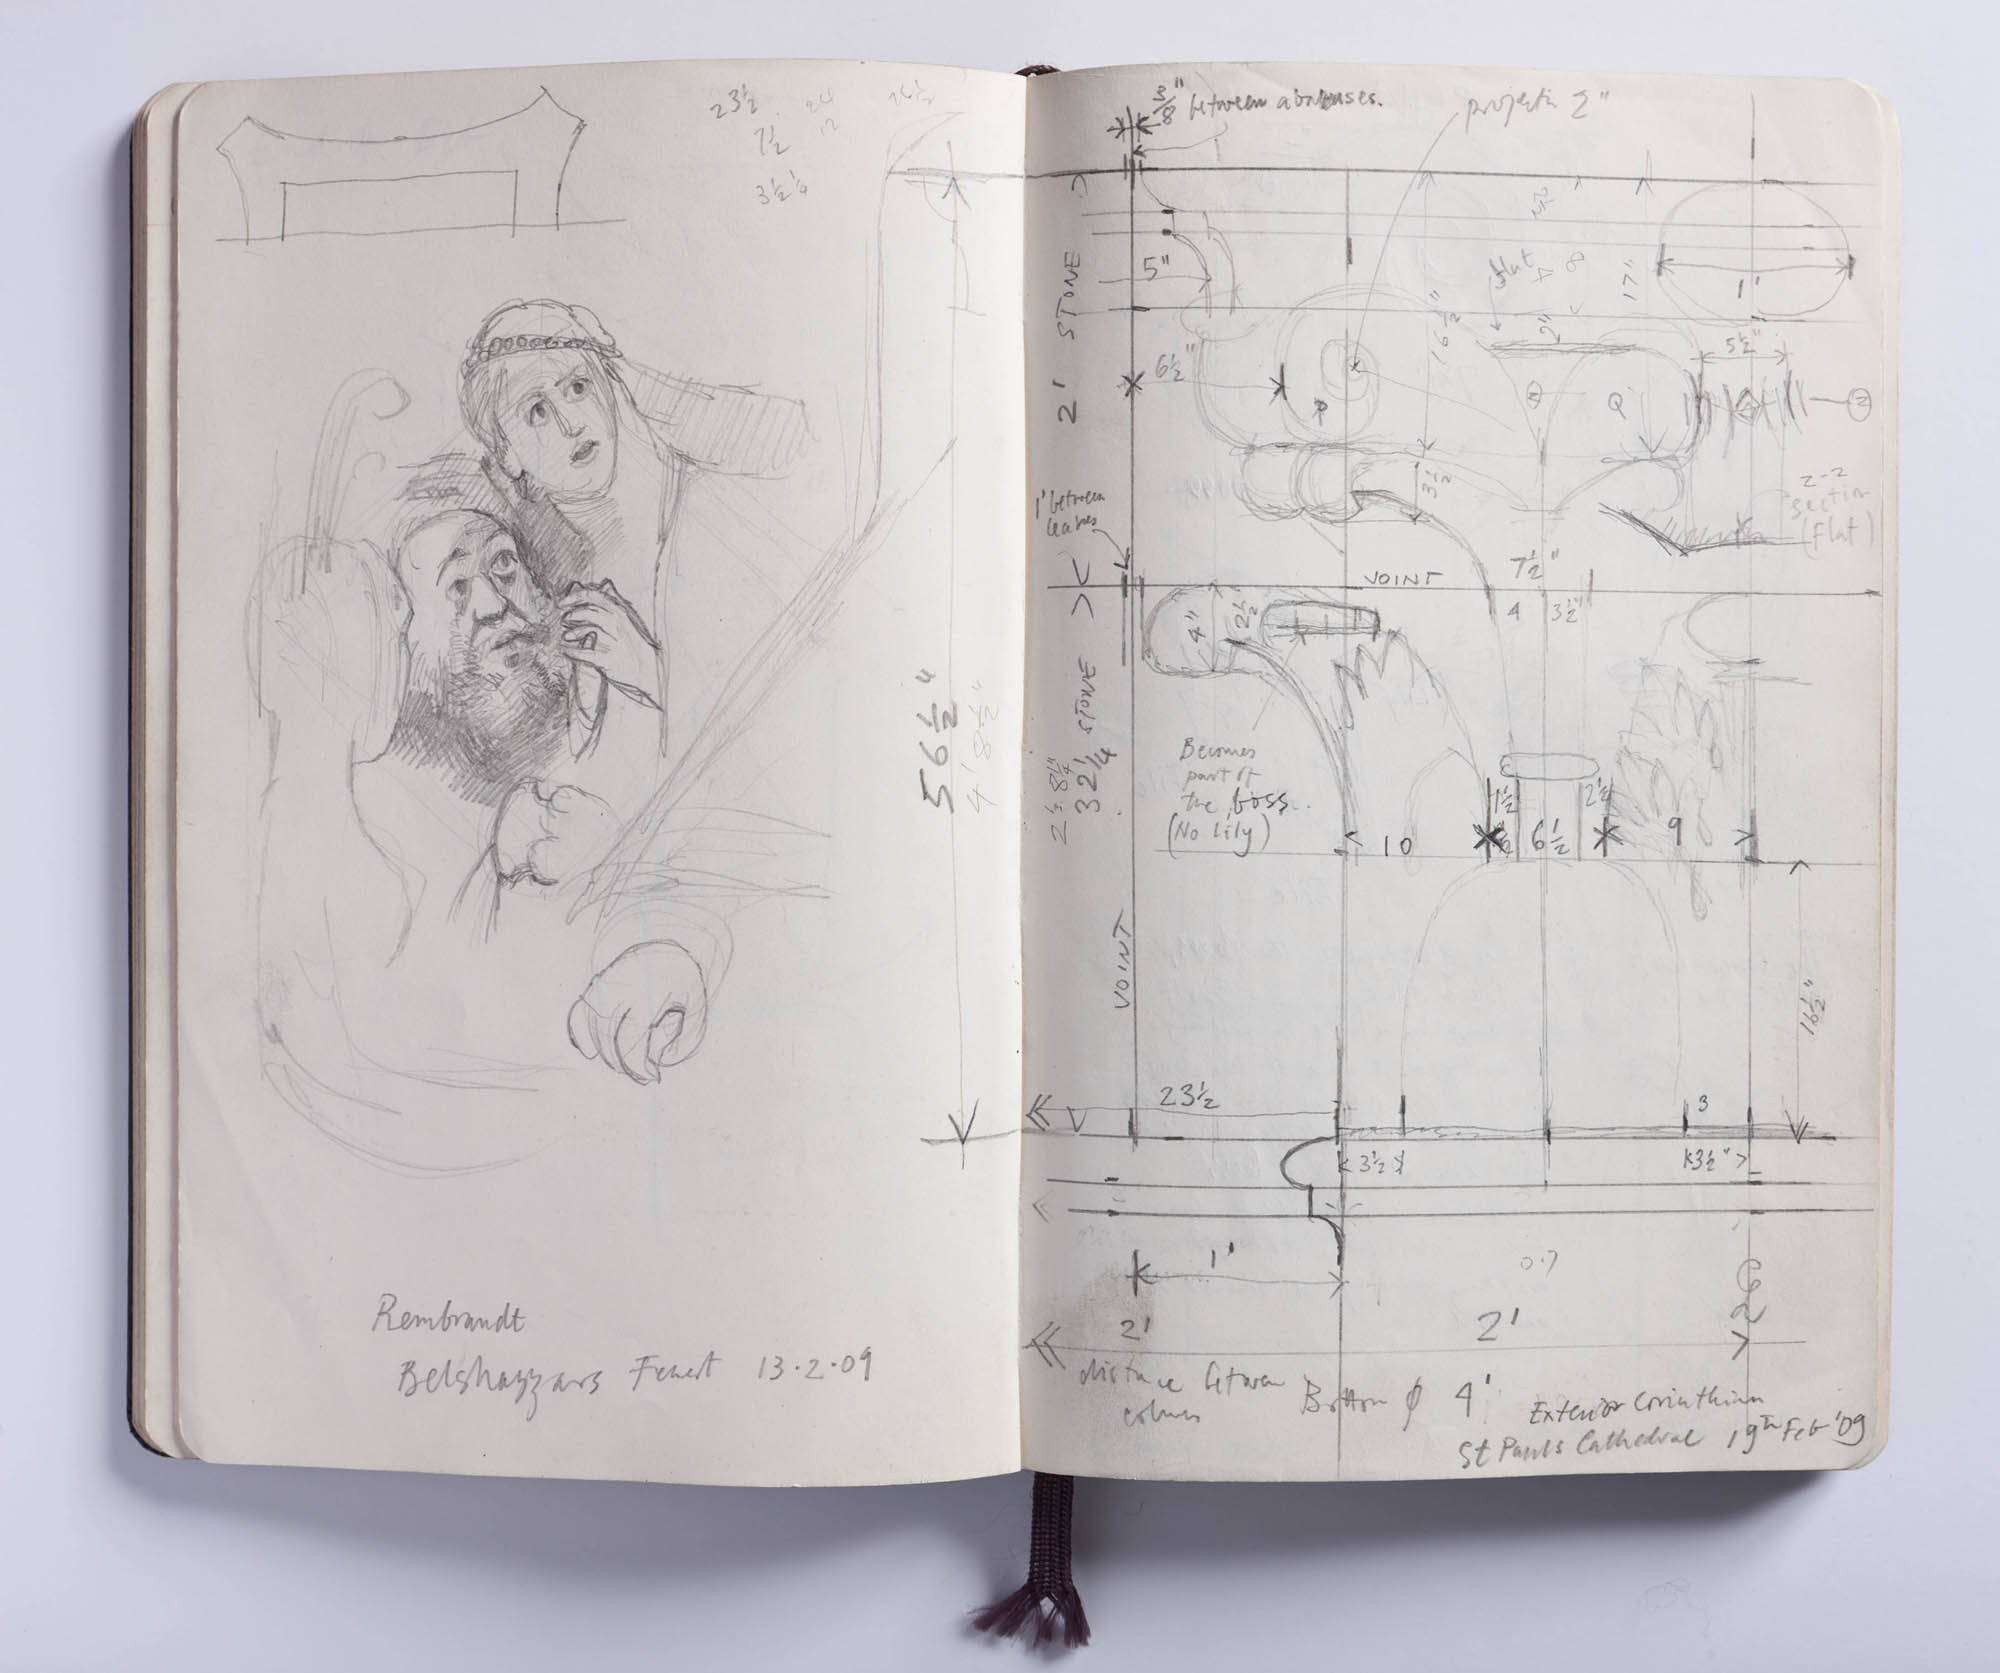 23½
24
7½
12
3½ ¼
56½"
4' 8½"
Rembrandt
Belshazzars Feast 13·2·09
3/8" between abacuses.
projectn 2"
2' STONE
5"
2½
flat
4
8
17"
1'
16½"
2"
5½"
6½"
P
Q
Z
3½
Z-Z
Section
(flat)
1" between
leaves
JOINT
7½"
4
3½"
4"
2½
STONE
32¼
2' 8¼"
Becomes
part of
the boss.
(No Lily)
1½
2¼
10
6½
9
JOINT
16½"
23½
3
3½
3½"
1'
0.7
2'
2'
distance between
columns
Bottom ϕ 4'
Exterior Corinthian
St Pauls Cathedral 19th Feb '09